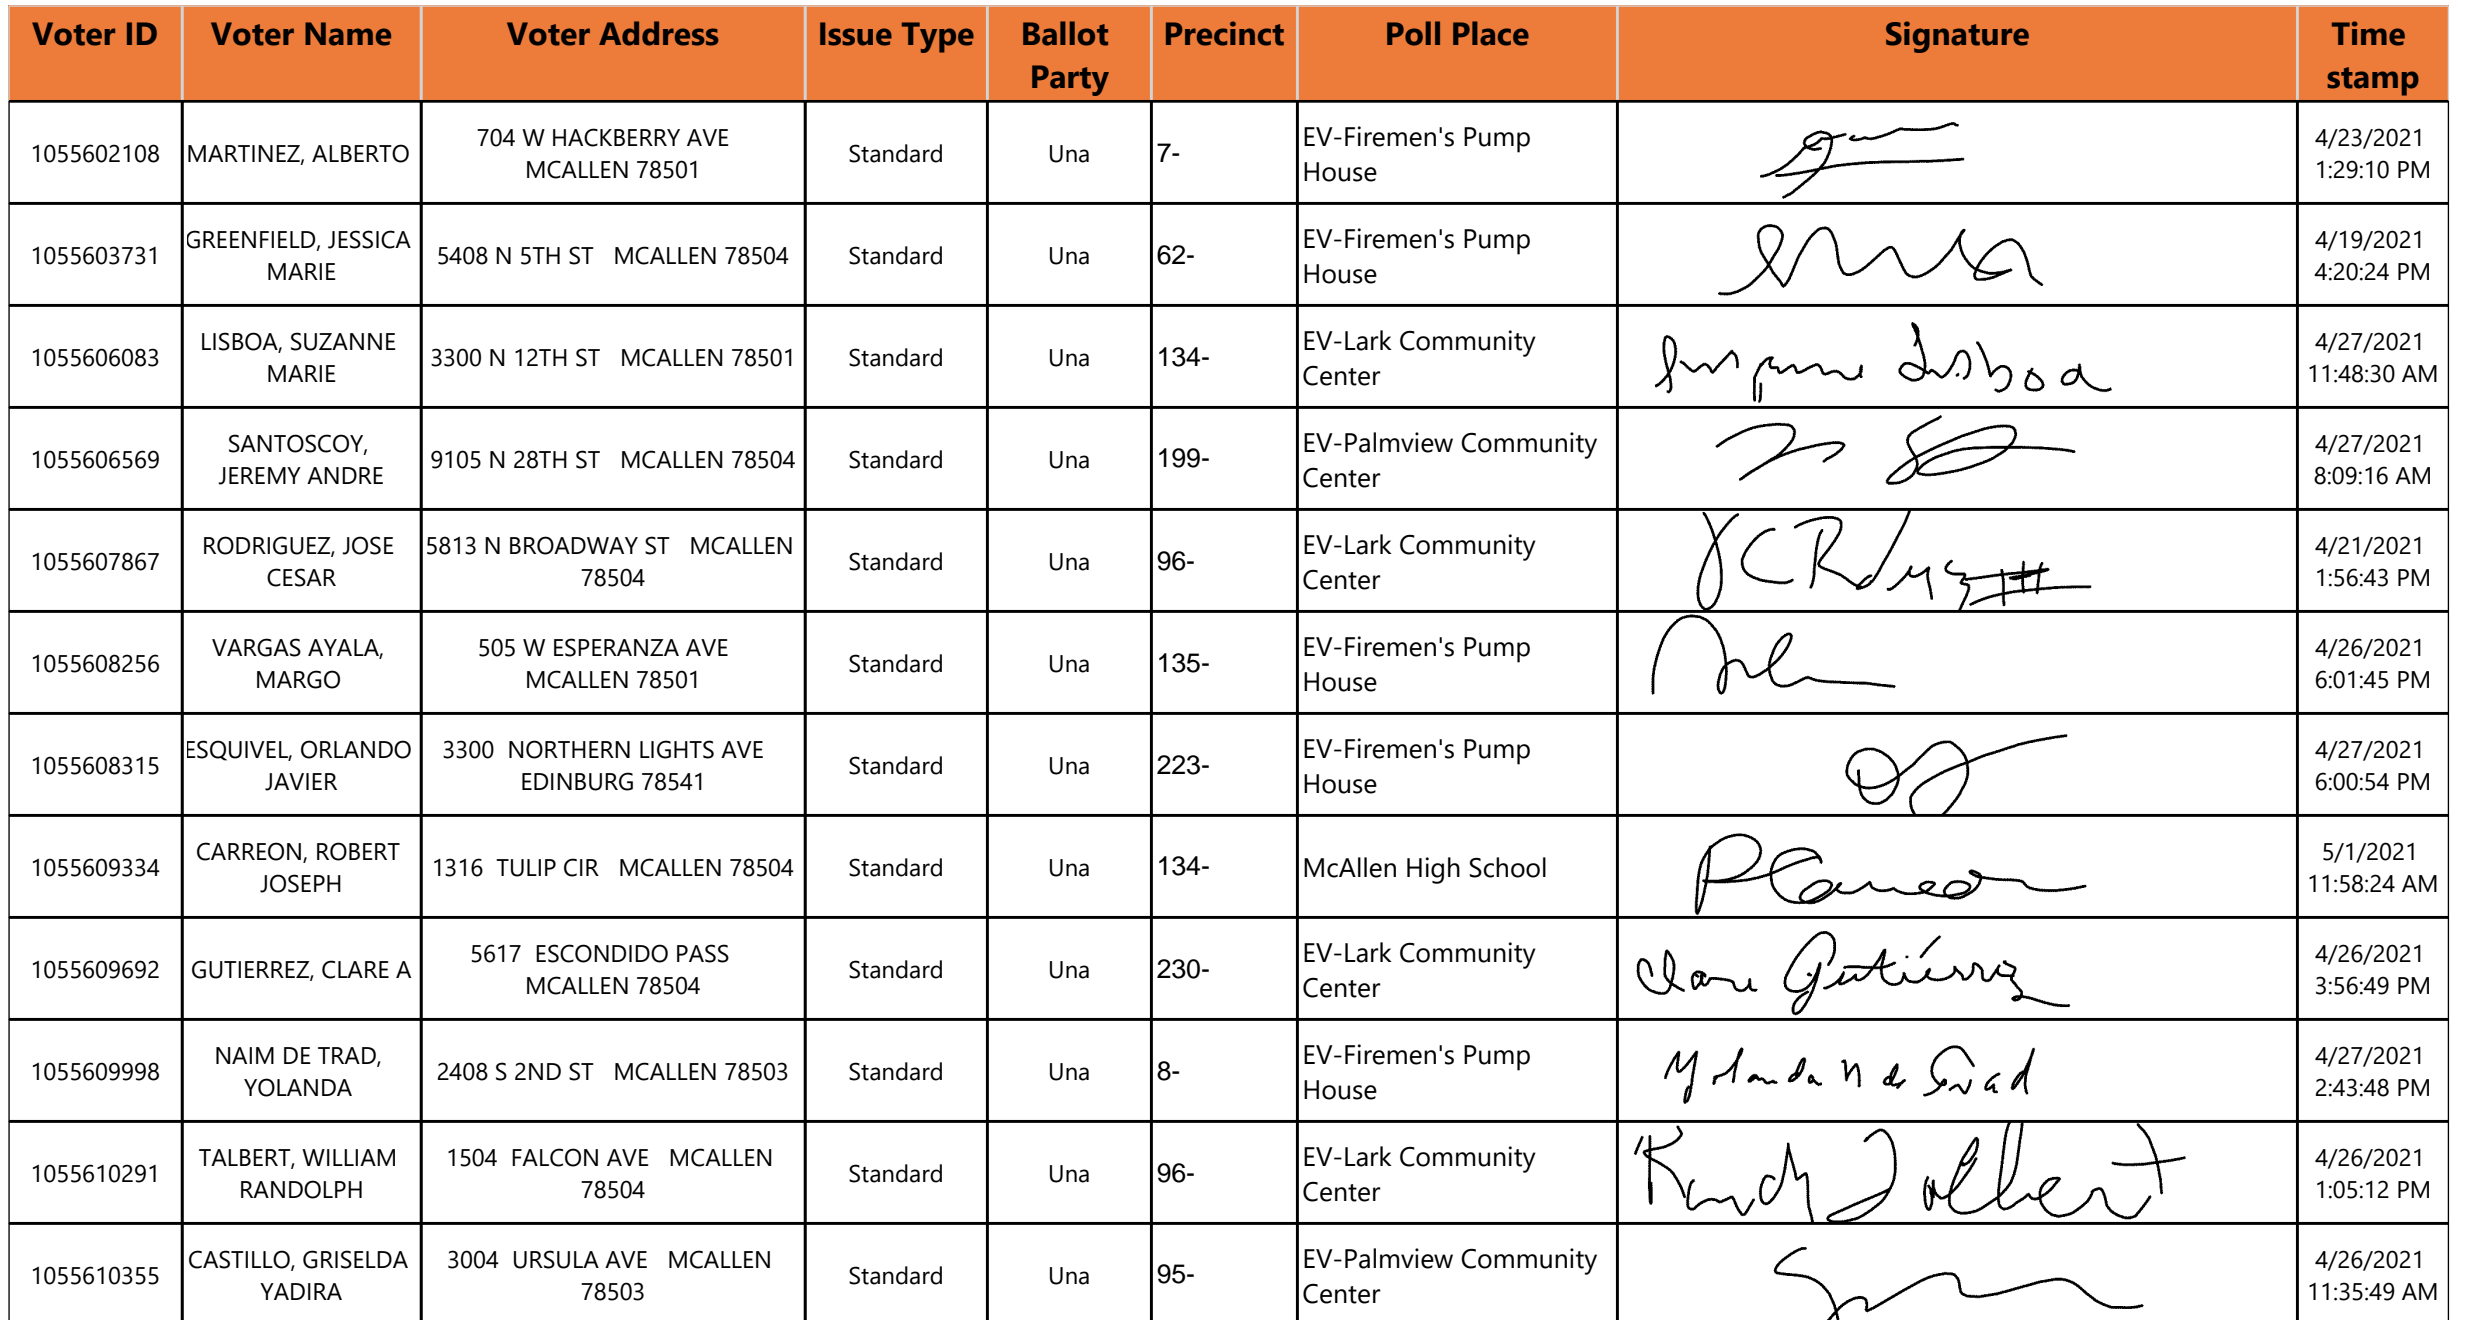 Voter ID Voter Name Voter Address Issue Type Ballot Party Precinct Poll Place Signature Time stamp
1055602108 MARTINEZ, ALBERTO 704 W HACKBERRY AVE MCALLEN 78501 Standard Una 7- EV-Firemen's Pump House 4/23/2021 1:29:10 PM
1055603731 GREENFIELD, JESSICA MARIE 5408 N 5TH ST MCALLEN 78504 Standard Una 62- EV-Firemen's Pump House 4/19/2021 4:20:24 PM
1055606083 LISBOA, SUZANNE MARIE 3300 N 12TH ST MCALLEN 78501 Standard Una 134- EV-Lark Community Center Suzanne Lisboa 4/27/2021 11:48:30 AM
1055606569 SANTOSCOY, JEREMY ANDRE 9105 N 28TH ST MCALLEN 78504 Standard Una 199- EV-Palmview Community Center 4/27/2021 8:09:16 AM
1055607867 RODRIGUEZ, JOSE CESAR 5813 N BROADWAY ST MCALLEN 78504 Standard Una 96- EV-Lark Community Center 4/21/2021 1:56:43 PM
1055608256 VARGAS AYALA, MARGO 505 W ESPERANZA AVE MCALLEN 78501 Standard Una 135- EV-Firemen's Pump House 4/26/2021 6:01:45 PM
1055608315 ESQUIVEL, ORLANDO JAVIER 3300 NORTHERN LIGHTS AVE EDINBURG 78541 Standard Una 223- EV-Firemen's Pump House 4/27/2021 6:00:54 PM
1055609334 CARREON, ROBERT JOSEPH 1316 TULIP CIR MCALLEN 78504 Standard Una 134- McAllen High School R Carreon 5/1/2021 11:58:24 AM
1055609692 GUTIERREZ, CLARE A 5617 ESCONDIDO PASS MCALLEN 78504 Standard Una 230- EV-Lark Community Center Clare Gutiérrez 4/26/2021 3:56:49 PM
1055609998 NAIM DE TRAD, YOLANDA 2408 S 2ND ST MCALLEN 78503 Standard Una 8- EV-Firemen's Pump House Yolanda N de Trad 4/27/2021 2:43:48 PM
1055610291 TALBERT, WILLIAM RANDOLPH 1504 FALCON AVE MCALLEN 78504 Standard Una 96- EV-Lark Community Center Randy Talbert 4/26/2021 1:05:12 PM
1055610355 CASTILLO, GRISELDA YADIRA 3004 URSULA AVE MCALLEN 78503 Standard Una 95- EV-Palmview Community Center 4/26/2021 11:35:49 AM